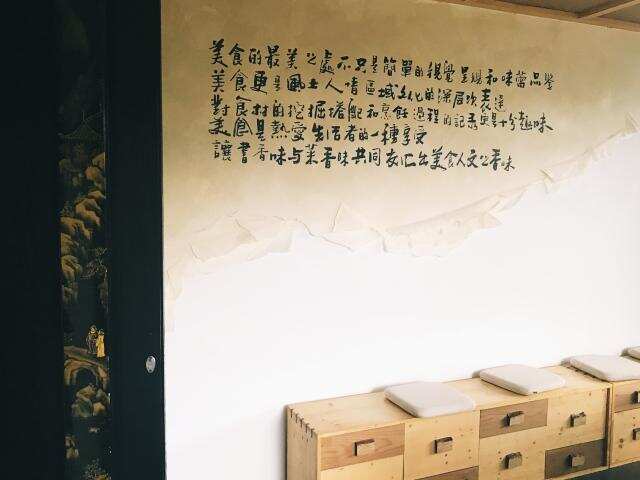 美食的最美之處不只是簡單的視覺呈現和味蕾品嚐
美食更是風土人情區域文化的深層次表達
對食材的挖掘搭配和烹飪過程的記錄與是十分趣味
美食是熱愛生活者的一種享受
讓書香味与菜香味共同衣汇出美食人文之香味